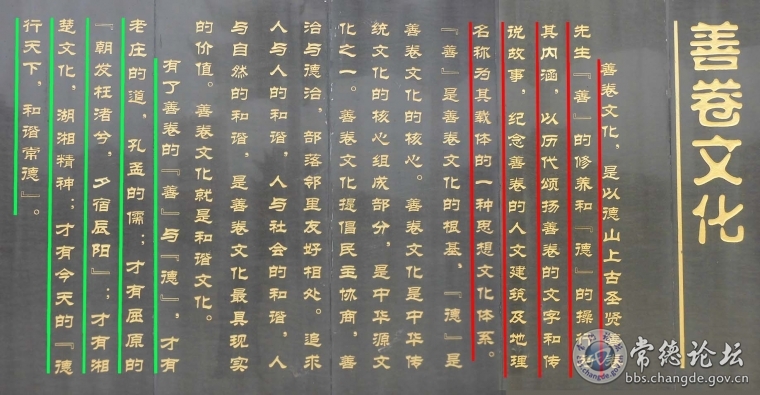 善卷文化
善卷文化，是以德山上古圣贤善卷
先生『善』的修养和『德』的操行为
其内涵，以历代颂扬善卷的文字和传
说故事，纪念善卷的人文建筑及地理
名称为其载体的一种思想文化体系。
『善』是善卷文化的根基，『德』是
善卷文化的核心。善卷文化是中华传
统文化的核心组成部分，是中华源文
化之一。善卷文化提倡民主协商，善
治与德治，部落邻里友好相处。追求
人与人的和谐，人与社会的和谐，人
与自然的和谐，是善卷文化最具现实
的价值。善卷文化就是和谐文化。
有了善卷的『善』与『德』，才有
老庄的道，孔孟的儒；才有屈原的
『朝发枉渚兮，夕宿辰阳』；才有湘
楚文化，湖湘精神；才有今天的『德
行天下，和谐常德』。
常德论坛
bbs.changde.gov.cn